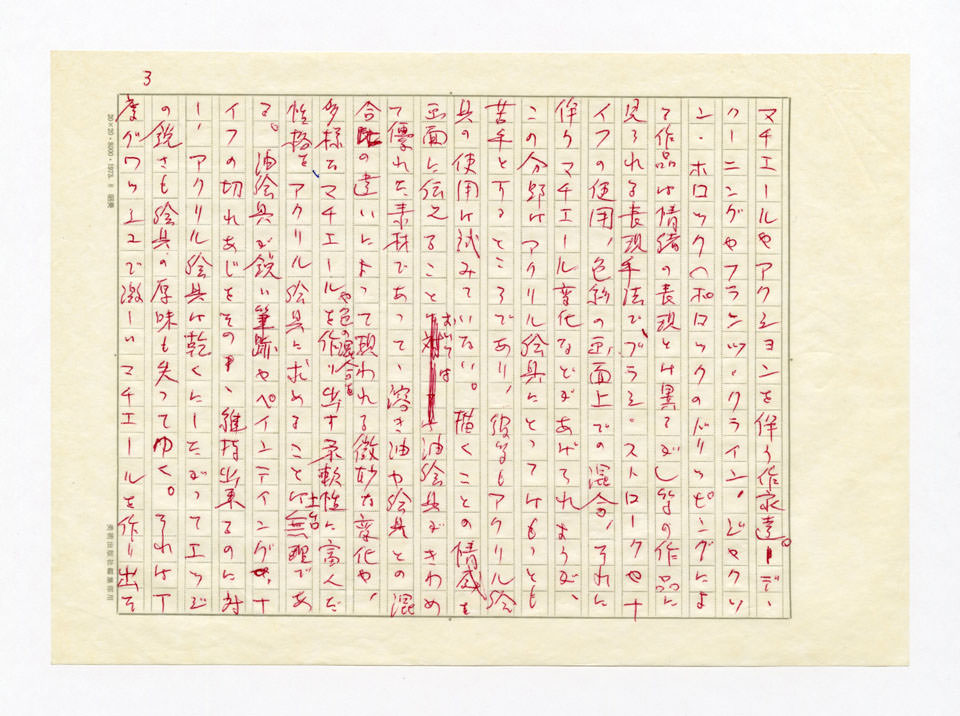 3
マチエールやアクションを伴う作家達。デ・
クーニングやフランツ・クライン、ジャクソ
ン・ポロック(ポロックのドリッピングによ
る作品は情緒の表現とは異るが)等の作品に
見られる表現手法で、ブラシ・ストロークやナ
イフの使用、色彩の画面上での混合、それに
伴うマチエール変化などがあげられようが、
この分野はアクリル絵具にとってはもっとも
苦手とするところであり、彼等もアクリル絵
具の使用は試みていない。描くことの情感を
画面に伝えることにおいては油絵具がきわめ
て優れた素材であって、溶き油や絵具との混
合の違いによって現われる微妙な変化や、
多様なマチエールや色の混合を作り出す柔軟性に富んだ
性格を、アクリル絵具に求めることは土台無理であ
る。油絵具が鋭い筆跡やペインティング・ナ
イフの切れあじをそのまゝ維持出来るのに対
し、アクリル絵具は乾くにしたがってエッジ
の鋭さも絵具の厚味も失ってゆく。それは丁
度グワッシュで激しいマチエールを作り出そ
20×20・5000・1973.
美術出版社編集部用